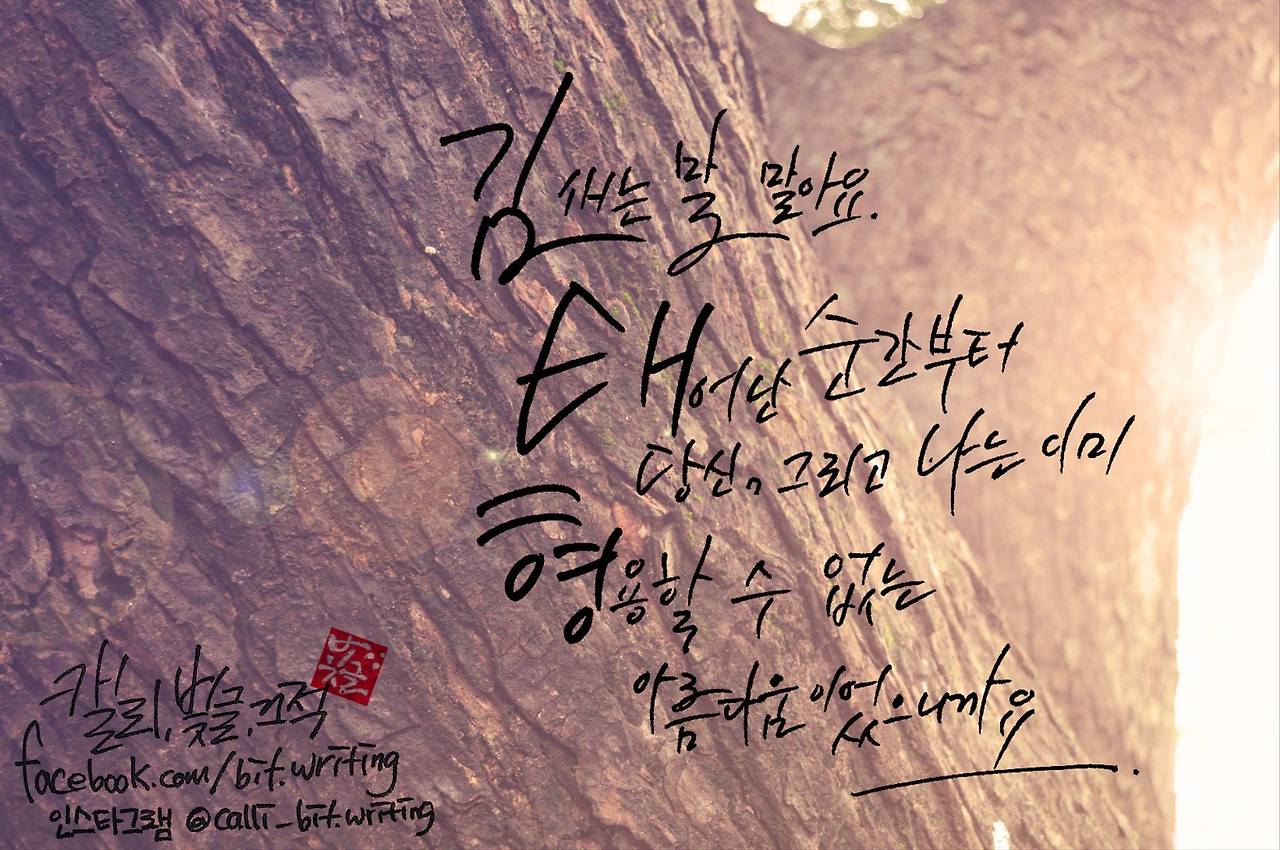 김새는 말 말아요.
태어난 순간부터
당신, 그리고 나는 이미
형용할 수 없는
아름다움이었으니까요.
캘리, 빛글.끄적
facebook.com/bit.writing
인스타그램 @calli_bit.writing